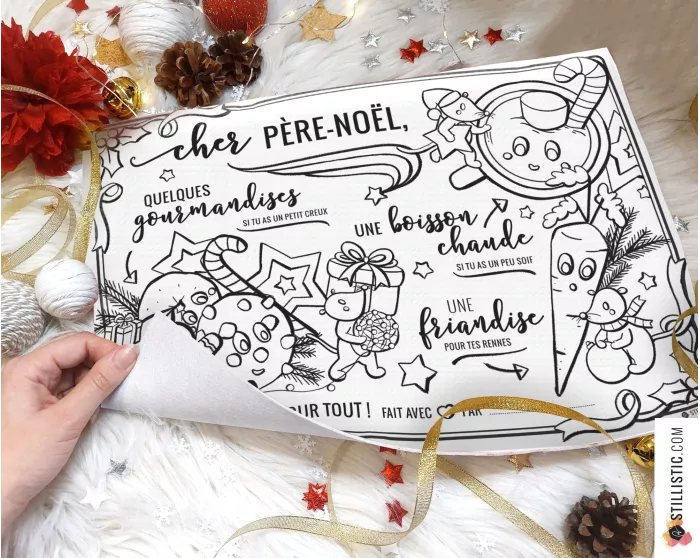 cher PÈRE-NOËL,
QUELQUES
gourmandises
SI TU AS UN PETIT CREUX
UNE boisson
chaude
SI TU AS UN PEU SOIF
UNE
friandise
POUR TES RENNES
OUR TOUT ! FAIT AVEC PAR
STILLISTIC.COM